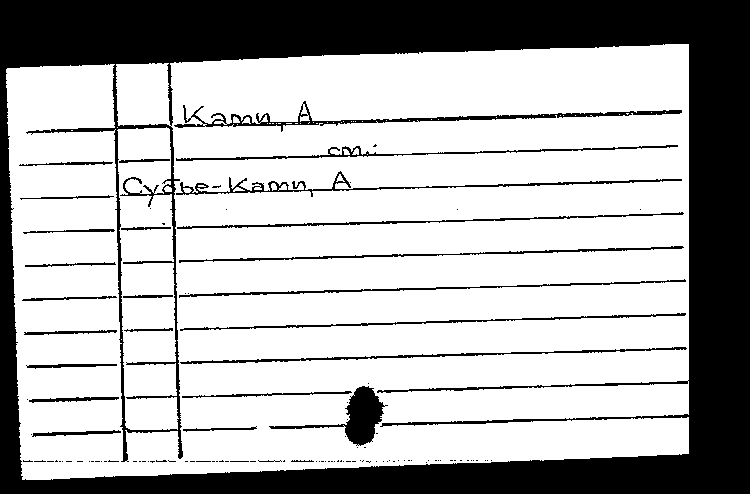 Камп, А.
см.:
Субье-Камп, А